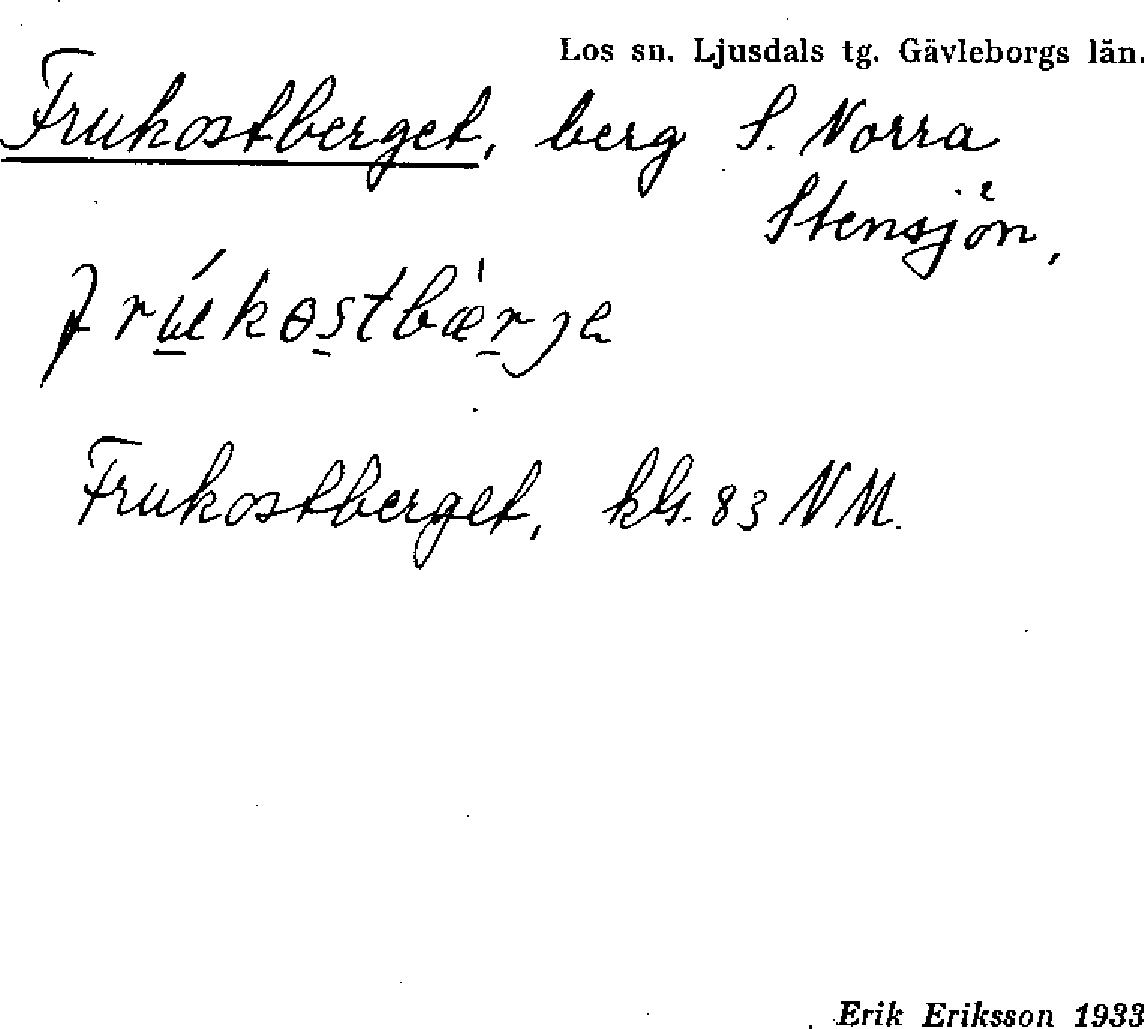 Los sn. Ljusdals tg. Gävleborgs län.
Frukostberget, berg S. Norra
Stensjön,
frúkostbæ̀rje
Frukostberget, kbl. 83 NM.
Erik Eriksson 1933